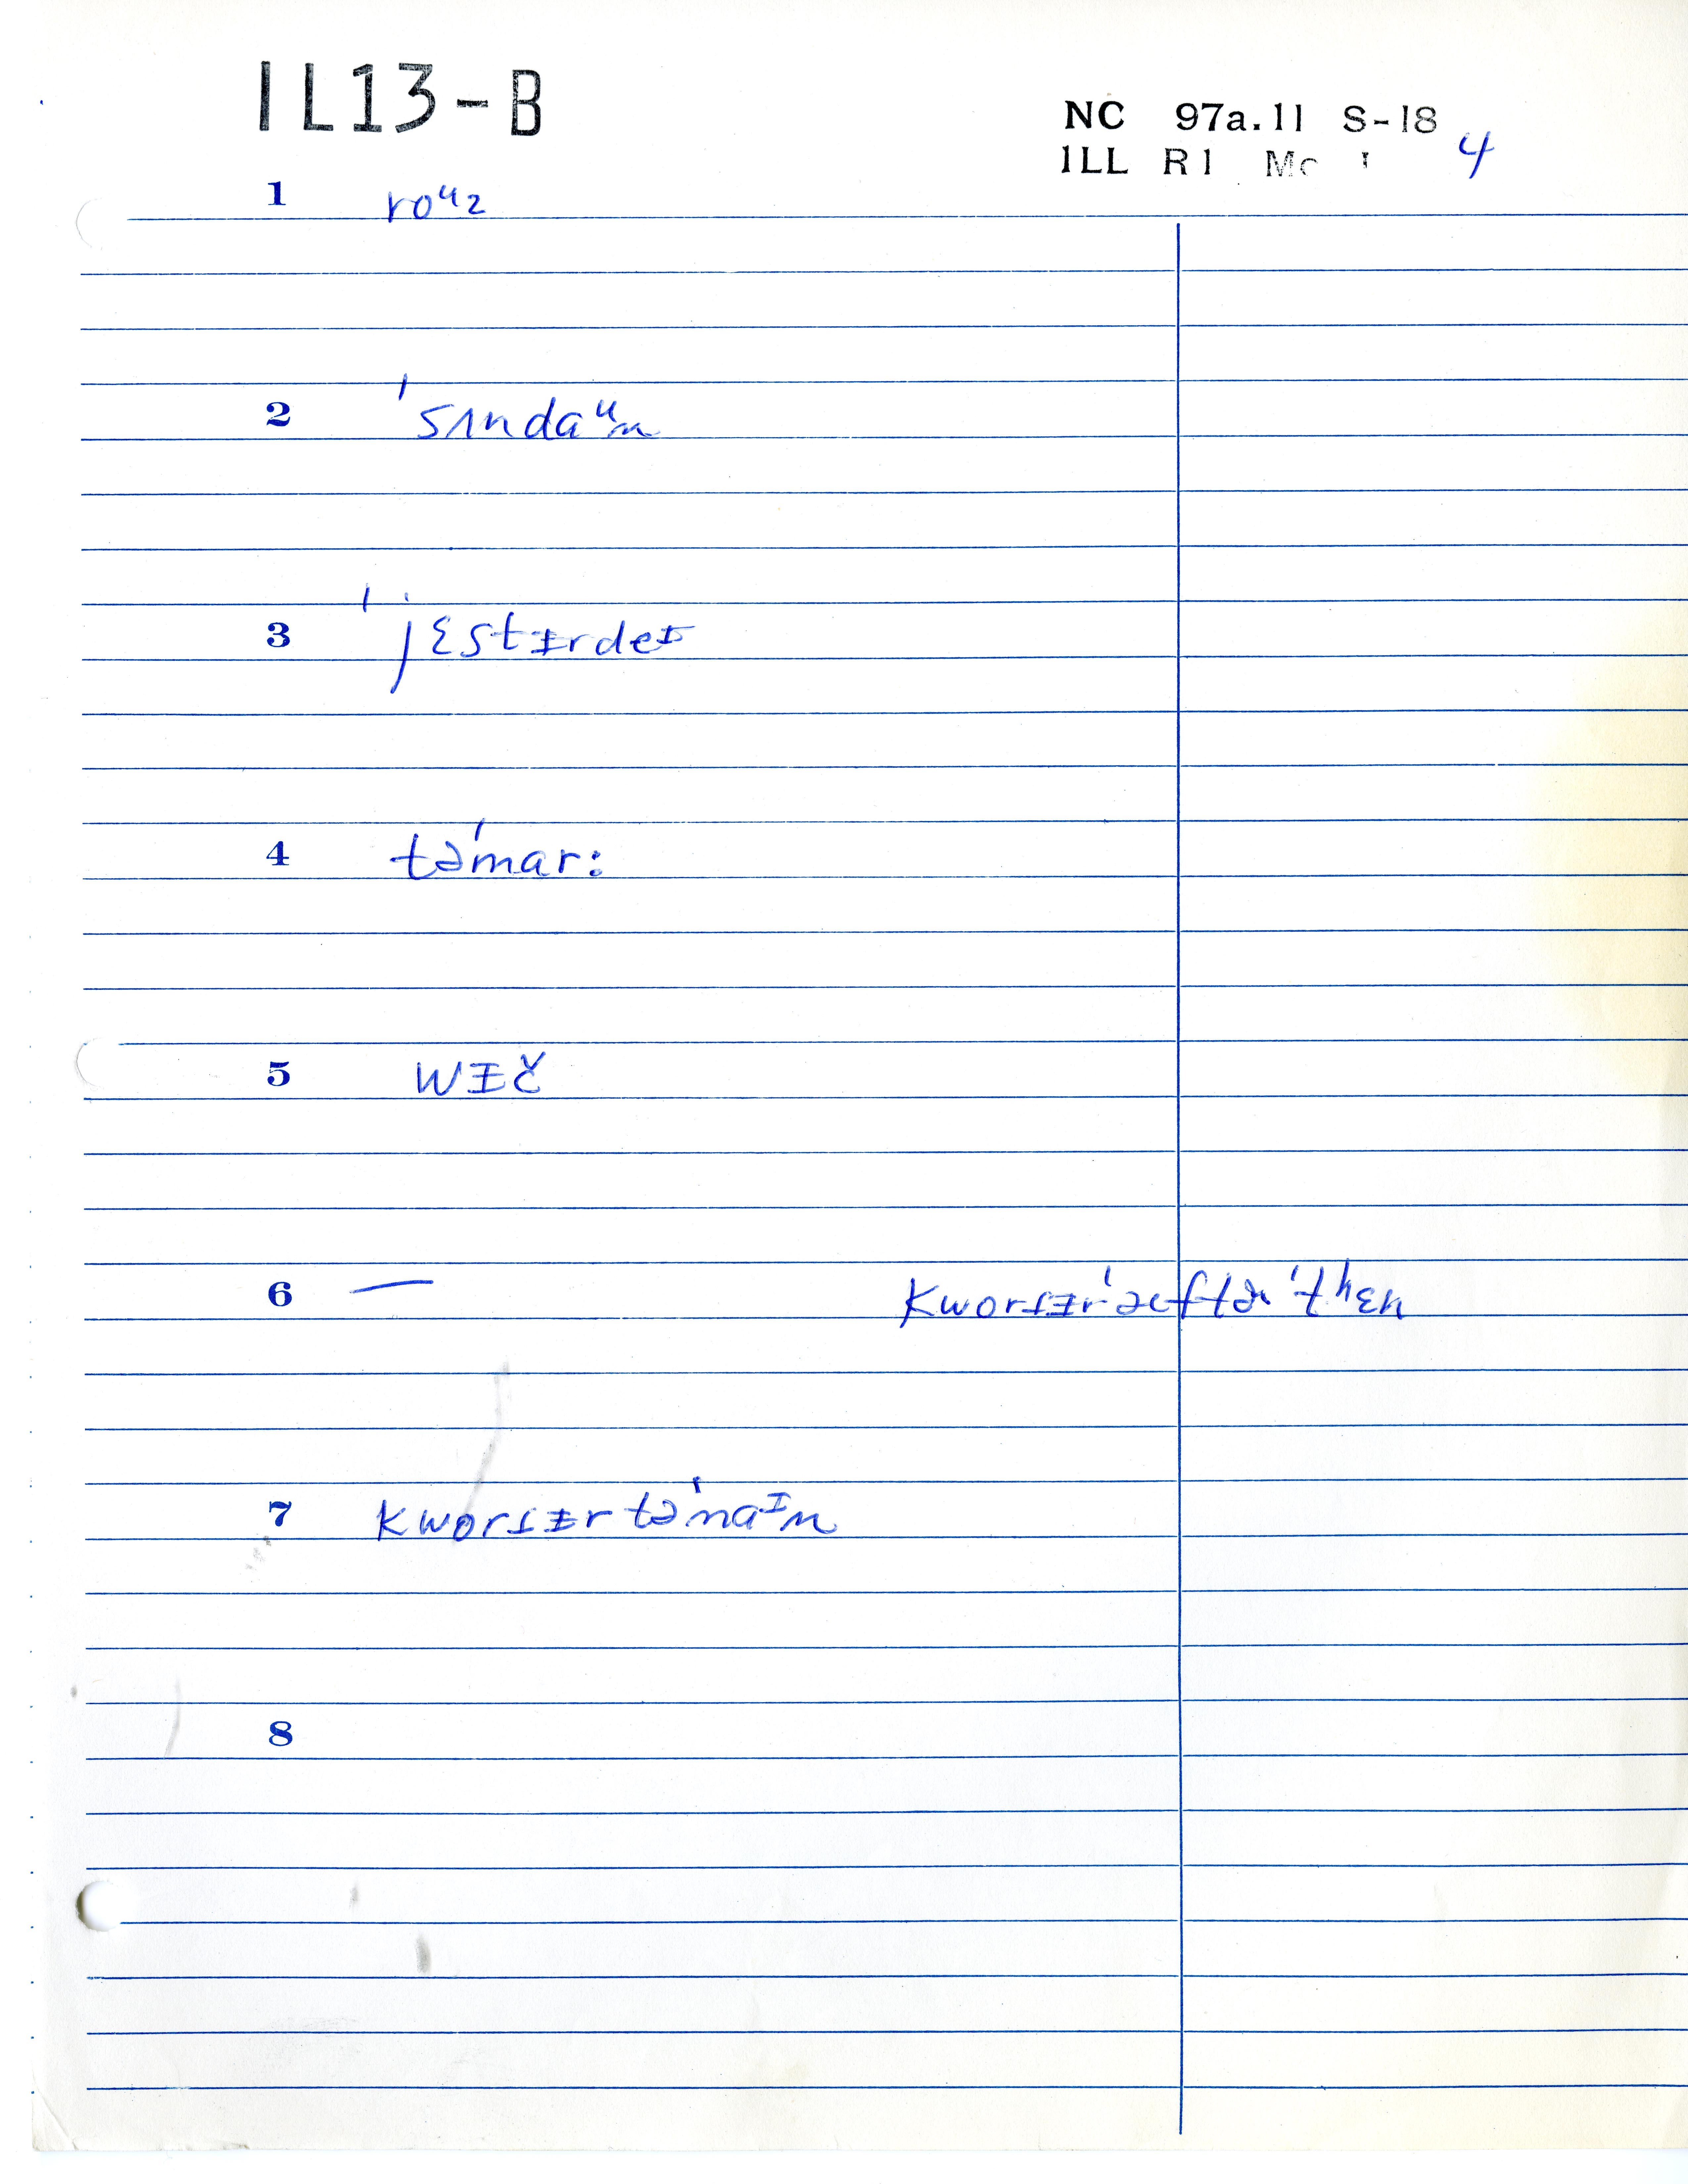 IL13-B
NC 97a.11 S-18
ILL R1 Mc I 4
1 roᵘz
2 ˈsʌndaᵘn
3 ˈjɛstɪrdeᵻ
4 təˈmar:
5 wɪč
6 — kworɾɪrˈæftəˈtʰɛn
7 kworɾɪr təˈnaᶦn
8